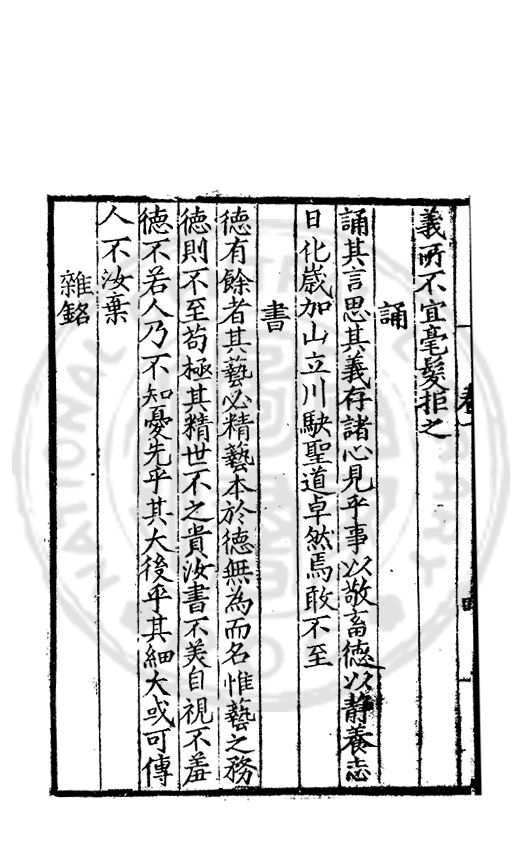 義所不宜毫髮拒之
誦
誦其言思其義存諸心見乎事以敬畜德以靜養志
日化歲加山立川駛聖道卓然焉敢不至
書
德有餘者其藝必精藝本於德無為而名惟藝之務
德則不至苟極其精世不之貴汝書不美自視不羞
德不若人乃不知憂先乎其大後乎其細大或可傳
人不汝棄
雜銘